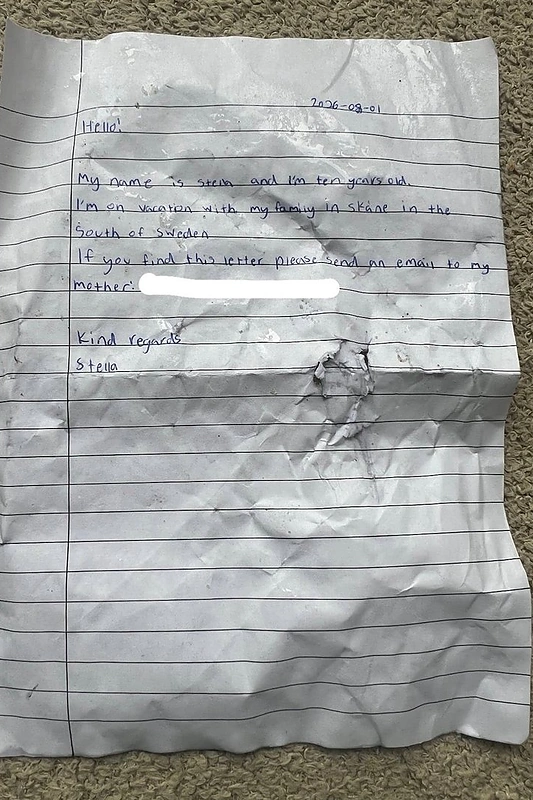 2026-08-01
Hello!
My name is Stella and I'm ten years old.
I'm on vacation with my family in skåne in the
South of Sweden
If you find this letter please send an email to my
mother:
Kind regards
Stella